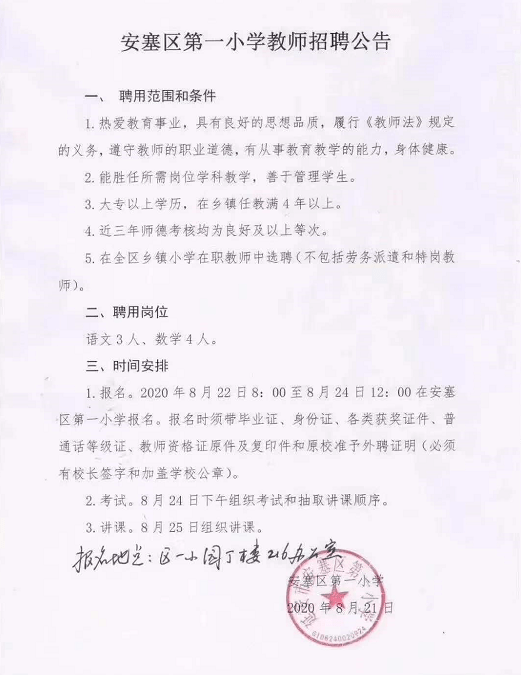 安塞区第一小学教师招聘公告
一、 聘用范围和条件
1.热爱教育事业，具有良好的思想品质，履行《教师法》规定
的义务，遵守教师的职业道德，有从事教育教学的能力，身体健康。
2.能胜任所需岗位学科教学，善于管理学生。
3.大专以上学历，在乡镇任教满4年以上。
4.近三年师德考核均为良好及以上等次。
5.在全区乡镇小学在职教师中选聘（不包括劳务派遣和特岗教
师）。
二、聘用岗位
语文3人、数学4人。
三、时间安排
1.报名。2020年8月22日8：00至8月24日12：00在安塞
区第一小学报名。报名时须带毕业证、身份证、各类获奖证件、普
通话等级证、教师资格证原件及复印件和原校准予外聘证明（必须
有校长签字和加盖学校公章）。
2.考试。8月24日下午组织考试和抽取讲课顺序。
3.讲课。8月25日组织讲课。
报名地点：区一小园丁楼216办公室
安塞区第一小学
2020年8月21日
延安市安塞区第一小学
6106240020924